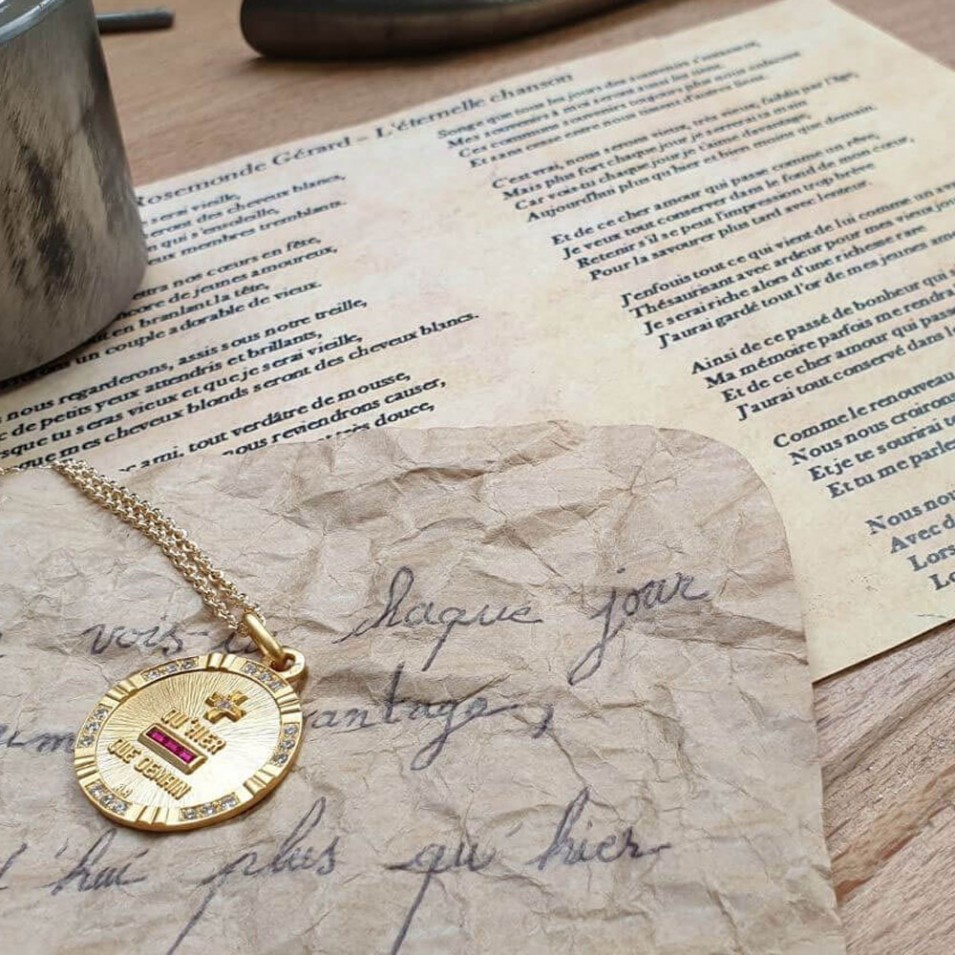 Rosemonde Gérard - L'éternelle chanson
serai vieille,
seront des cheveux blancs,
n qui s'ensoleille,
eux membres tremblants.
ettra nos cœurs en fête,
ncore de jeunes amoureux,
t en branlant la tête,
rons un couple adorable de vieux.
nous regarderons, assis sous notre treille,
c de petits yeux attendris et brillants,
rsque tu seras vieux et que je serai vieille,
que mes cheveux blonds seront des cheveux blancs.
ami, tout verdâtre de mousse,
nous reviendrons causer,
très douce,
Songe que tous les jours des
Mes souvenirs à mes seront aussi les tiens.
Ces communs souvenirs toujours plus nous
Et sans cesse entre nous tissent d'autres liens.
C'est vrai, nous serons vieux, très vieux, faiblis par l'âge,
Mais plus fort chaque jour je serrerai ta main
Car vois-tu chaque jour je t'aime davantage,
Aujourd'hui plus qu'hier et bien moins que demain.
Et de ce cher amour qui passe comme un rêve,
Je veux tout conserver dans le fond de mon cœur,
Retenir s'il se peut l'impression trop brève
Pour la savourer plus tard avec lenteur.
J'enfouis tout ce qui vient de lui comme un av
Thésaurisant avec ardeur pour mes vieux jou
Je serai riche alors d'une richesse rare
J'aurai gardé tout l'or de mes jeunes amo
Ainsi de ce passé de bonheur qui s
Ma mémoire parfois me rendra l
Et de ce cher amour qui passe
J'aurai tout conservé dans l
Comme le renouveau
Nous nous croirons
Et je te sourirai to
Et tu me parle
Nous no
Avec d
Lors
Lo
vois-tu chaque jour
antage,
'hui plus qu'hier
+
QU'HIER
QUE DEMAIN